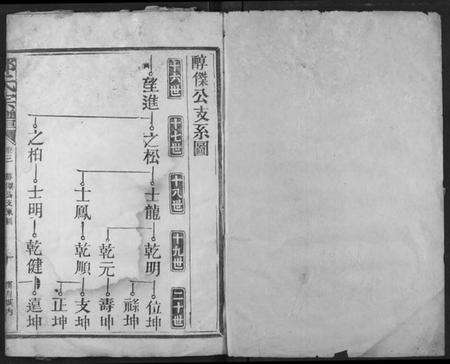 醇傑公支系圖
十六世
十七世
十八世
十九世
二十世
望進
之松
之柏
士龍
士鳳
士明
乾明
乾元
乾順
乾健
位坤
祿坤
壽坤
支坤
正坤
遠坤